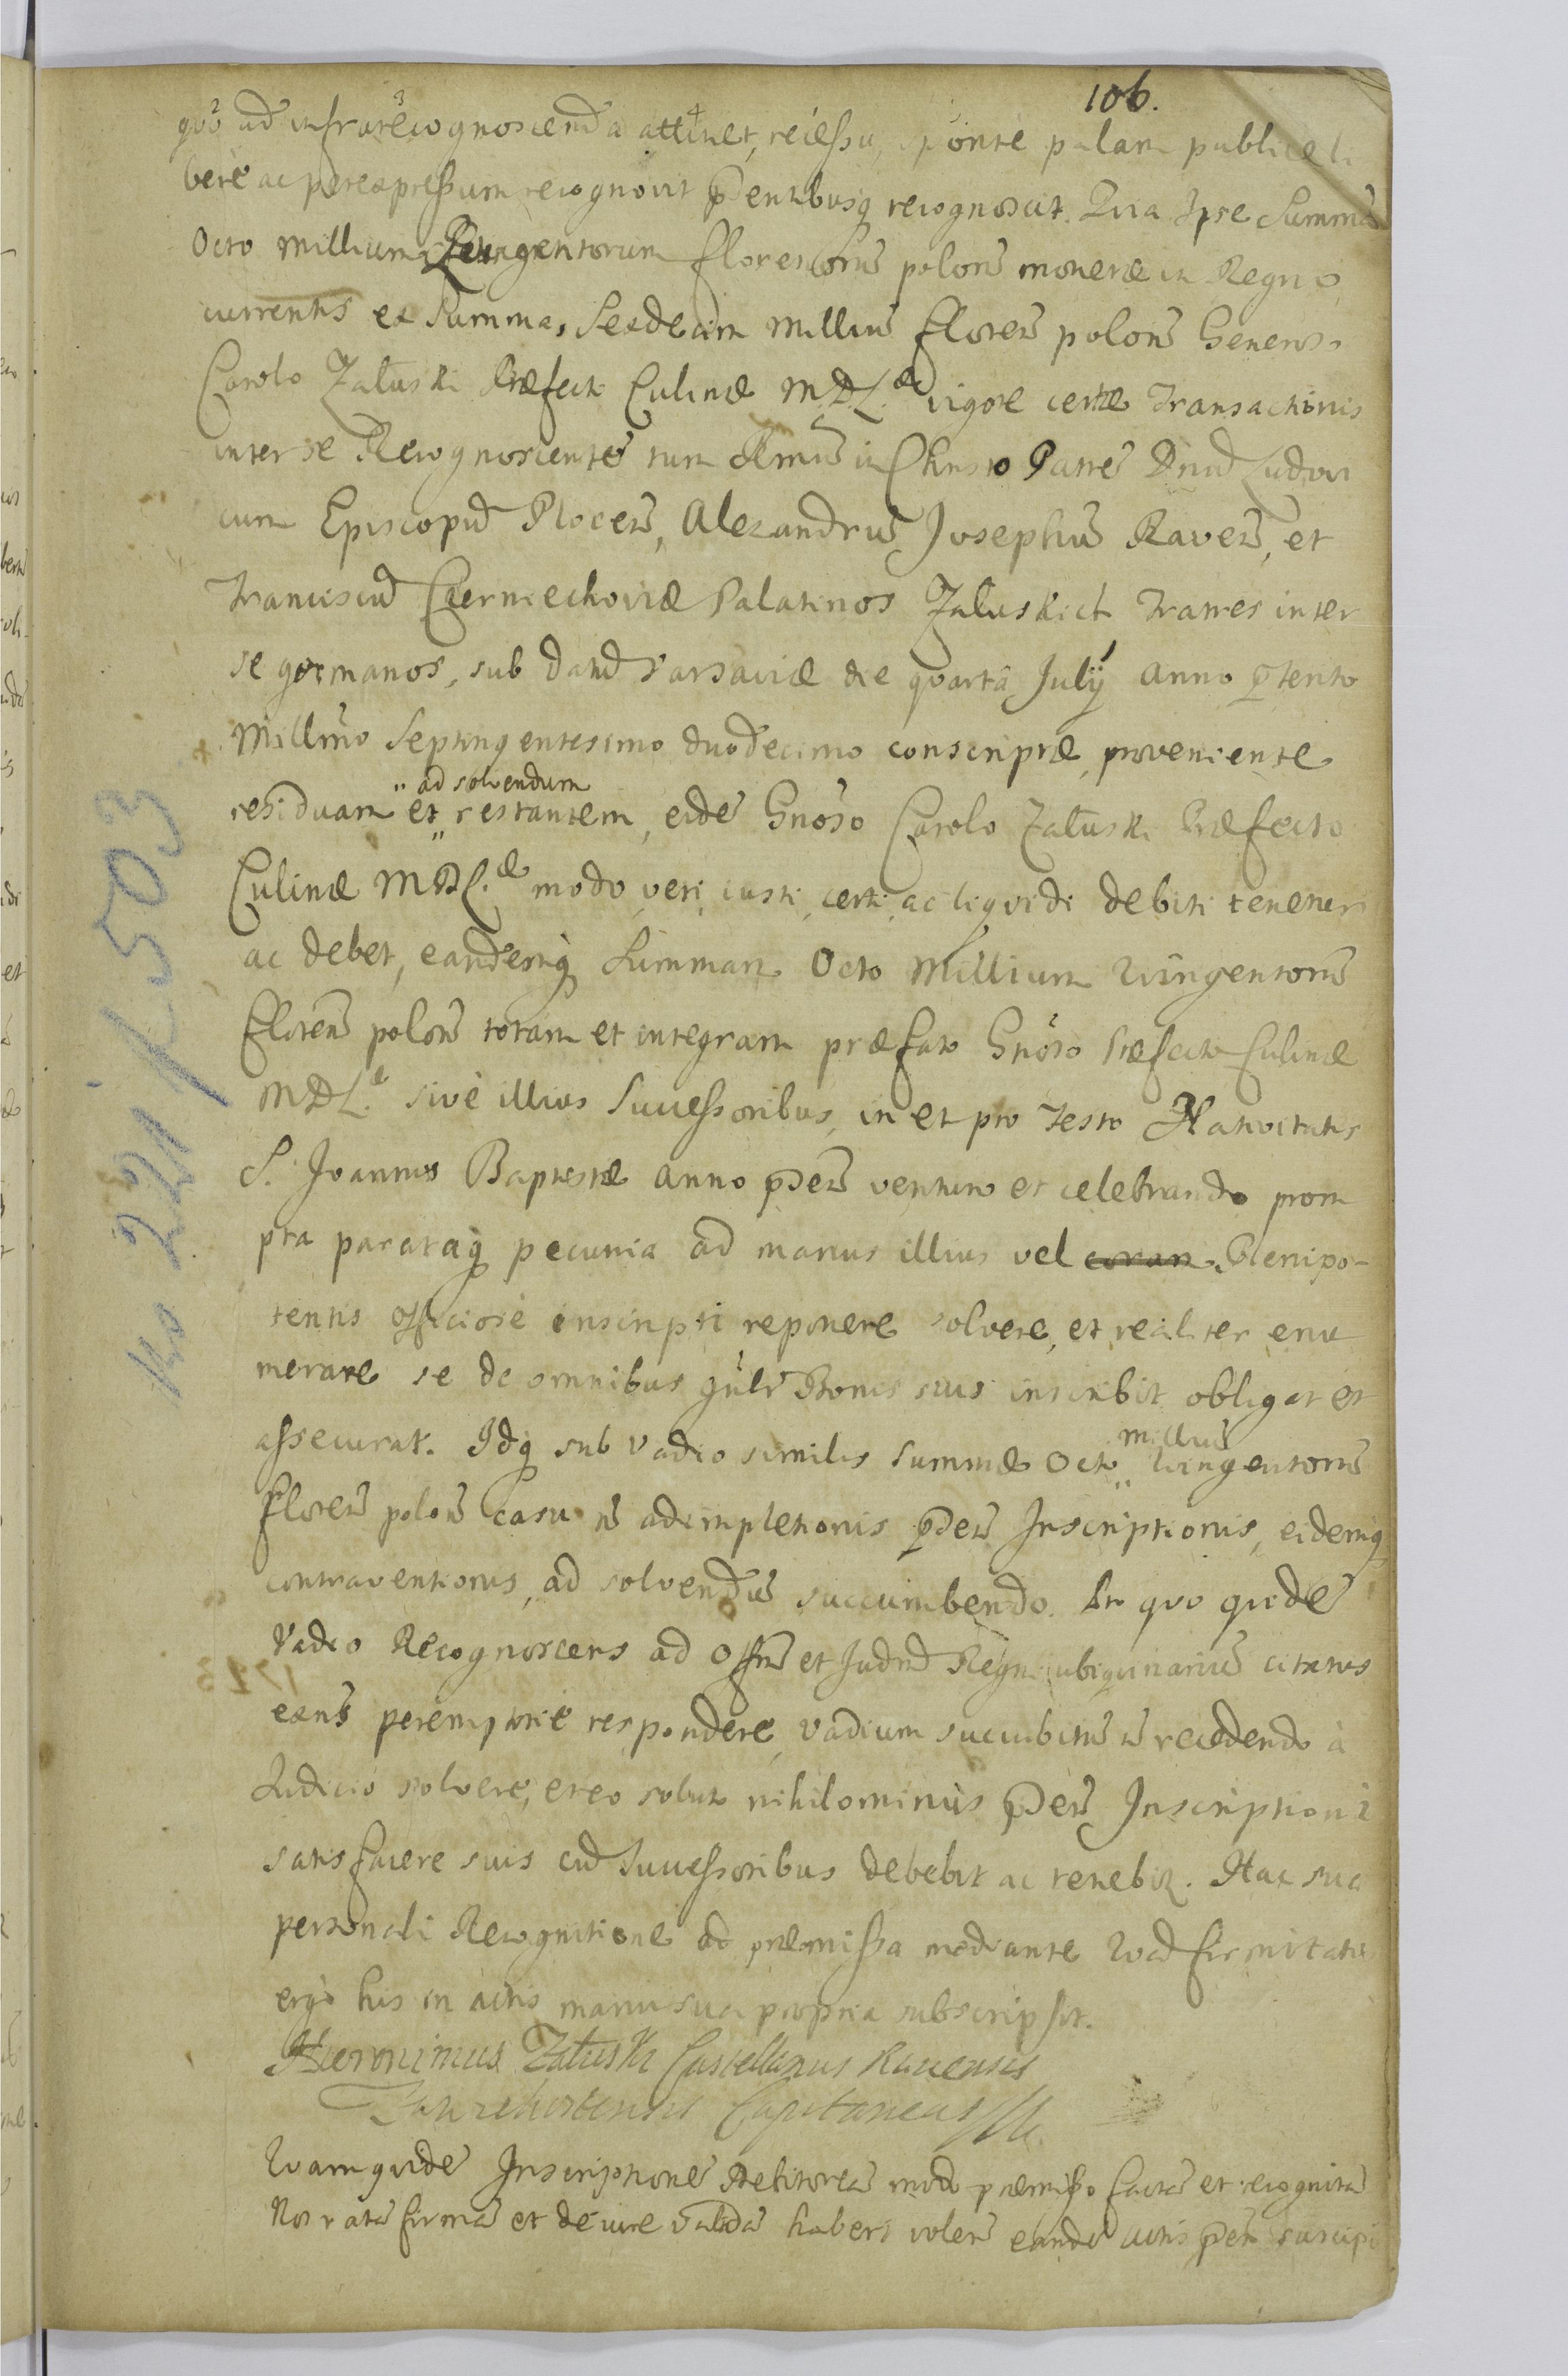 106.
quo ad infra recognoscenda attinet, recessu, sponte palam publice li
berè ac per expressum recognovit p̃entibusq recognoscit. Quia Ipse Summã
Octo Millium Quingentorum florenorũ polonˢ monetæ in Regno
currentis ex Summa, Sexdecim Milliũ florenˢ polonˢ Generoso
Carolo Załuski Præfecto Culinæ M.D.L.æ vigore certæ Transactionis
inter se Recognoscentẽ tum Rmũ in Christo Patrẽ Dnũ Ludovi
cum Episcopũ Plocenˢ, Alexandrũ Josephũ Ravenˢ, et
Franciscũ Czerniechoviæ Palatinos Załuskich Fratres inter
se germanos, sub datũ Varsaviæ die quartâ Julÿ Anno p̃terito
Millm̃o Septingentesimo duodecimo conscriptæ, proveniente
residuam et "ad solvendum" restantem, eidẽ Gnoso Carolo Załuski Præfecto
Culinæ M.D.L.æ modo veri, iusti, certi, ac liquidi debiti tenetur
ac debet, eandemq̃ Summam Octo Millium Quingentorũ
florenˢ polonˢ totam et integram præfato Gnoso Præfecto Culinæ
M.D.L.æ sivè illius Successoribus, in et pro Festo Nativitatis
S. Joannis Baptistæ Anno p̃denˢ venturo et celebrando prom
pta parataq̃ pecunia ad manus illius vel Plenipo-
tentis officiosè inscripti reponere solvere, et realiter enu
merare se de omnibus gñlr Bonis suis inscribit obligat et
assecurat. Idq̃ sub vadio similis summæ Octo milliũ Quingentorũ
florenˢ polonˢ casu nˢ adimpletionis p̃denˢ Inscriptionis, eidemq̃
contraventionis, ad solvendũ succumbendo. Pro quo quidẽ
Vadio Recognoscens ad Offm̃ et Judm̃ Regni ubiquinariũ citatus
exnˢ peremptoriè respondere, vadium succubitũ nˢ recedendo à
Judicio solvere, et eo soluto nihilominùs p̃denˢ Inscriptioni
satisfacere suis cũ Successoribus debebit ac tenebit̃. Hac sua
personali Recognitione ad præmissa mediante Quod firmitatis
ergò his in actis manu sua propria subscripsit.
Hieronimus Załuski Castellanus Rauensis
Capitaneus
Quamquidẽ Inscriptionẽ Debitoreã modo præmisso factã et recognitã
Nos ratã firmã et de iure validã haberi volenˢ eandẽ actis p̃entˢ suscipi
No 221/503